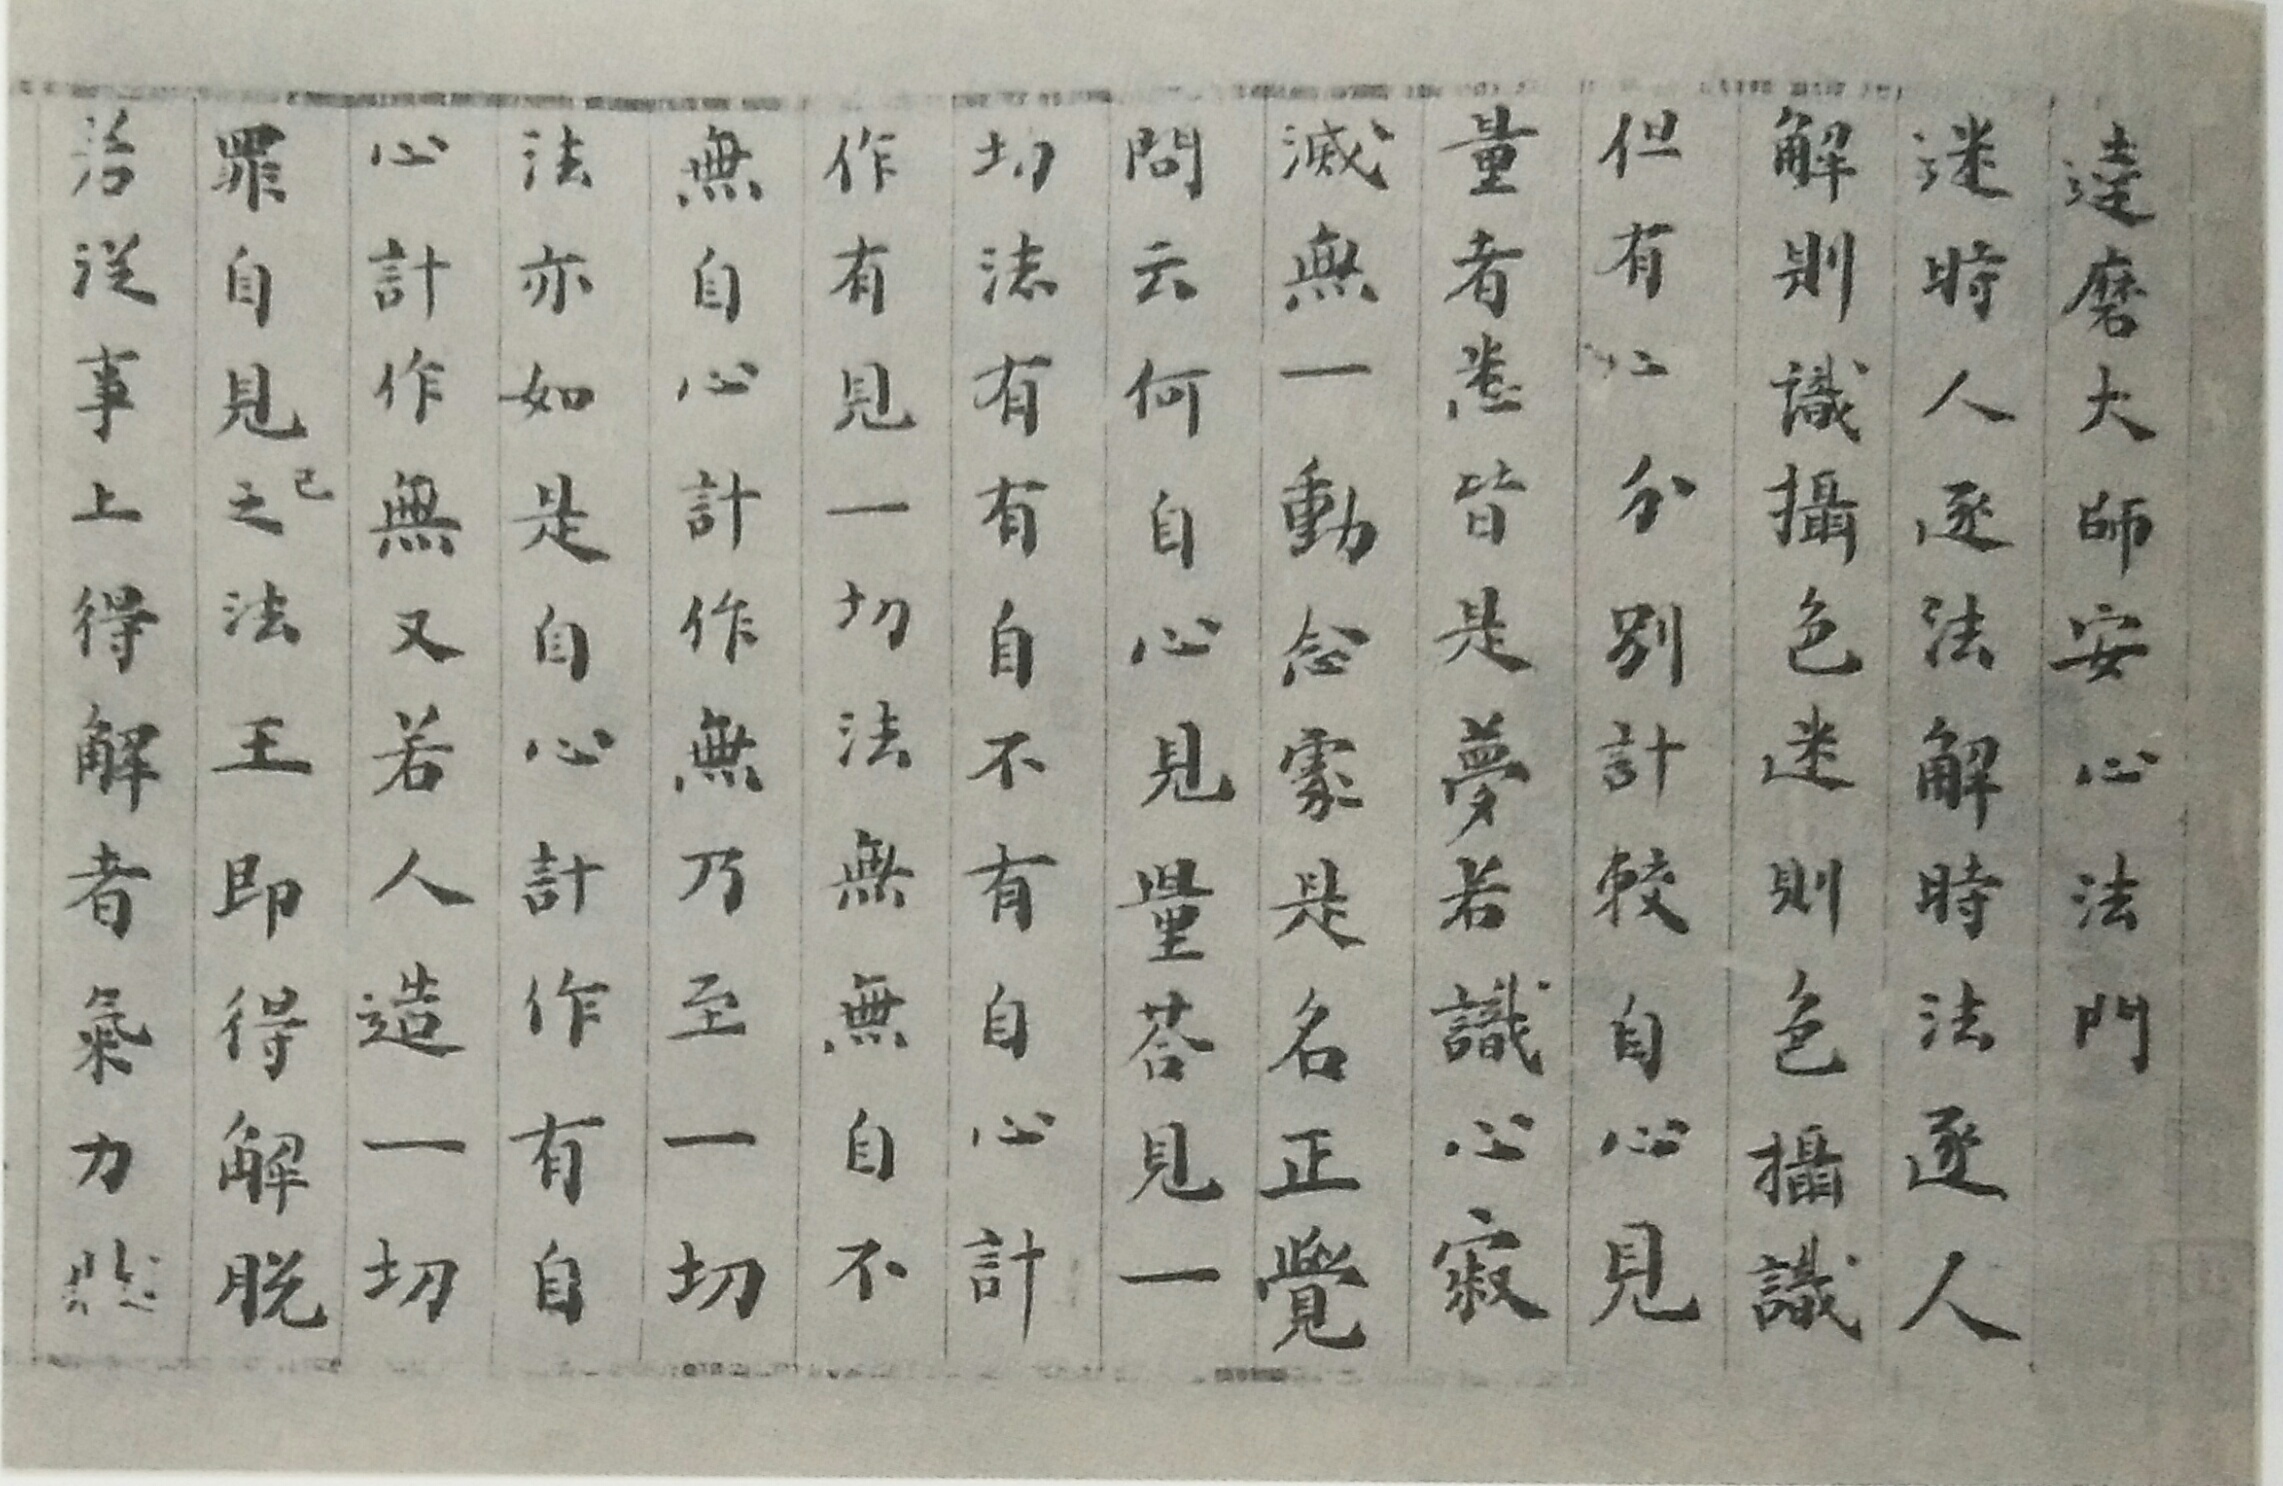 達磨大師安心法門
迷時人逐法解時法逐人
解則識攝色迷則色攝識
但有心分別計較自心見
量者悉皆是夢若識心寂
滅無一動念處是名正覺
問云何自心見量荅見一
切法有有自不有自心計
作有見一切法無無自不
無自心計作無乃至一切
法亦如是自心計作有自
心計作無又若人造一切
罪自見之己法王即得解脱
若從事上得解者氣力